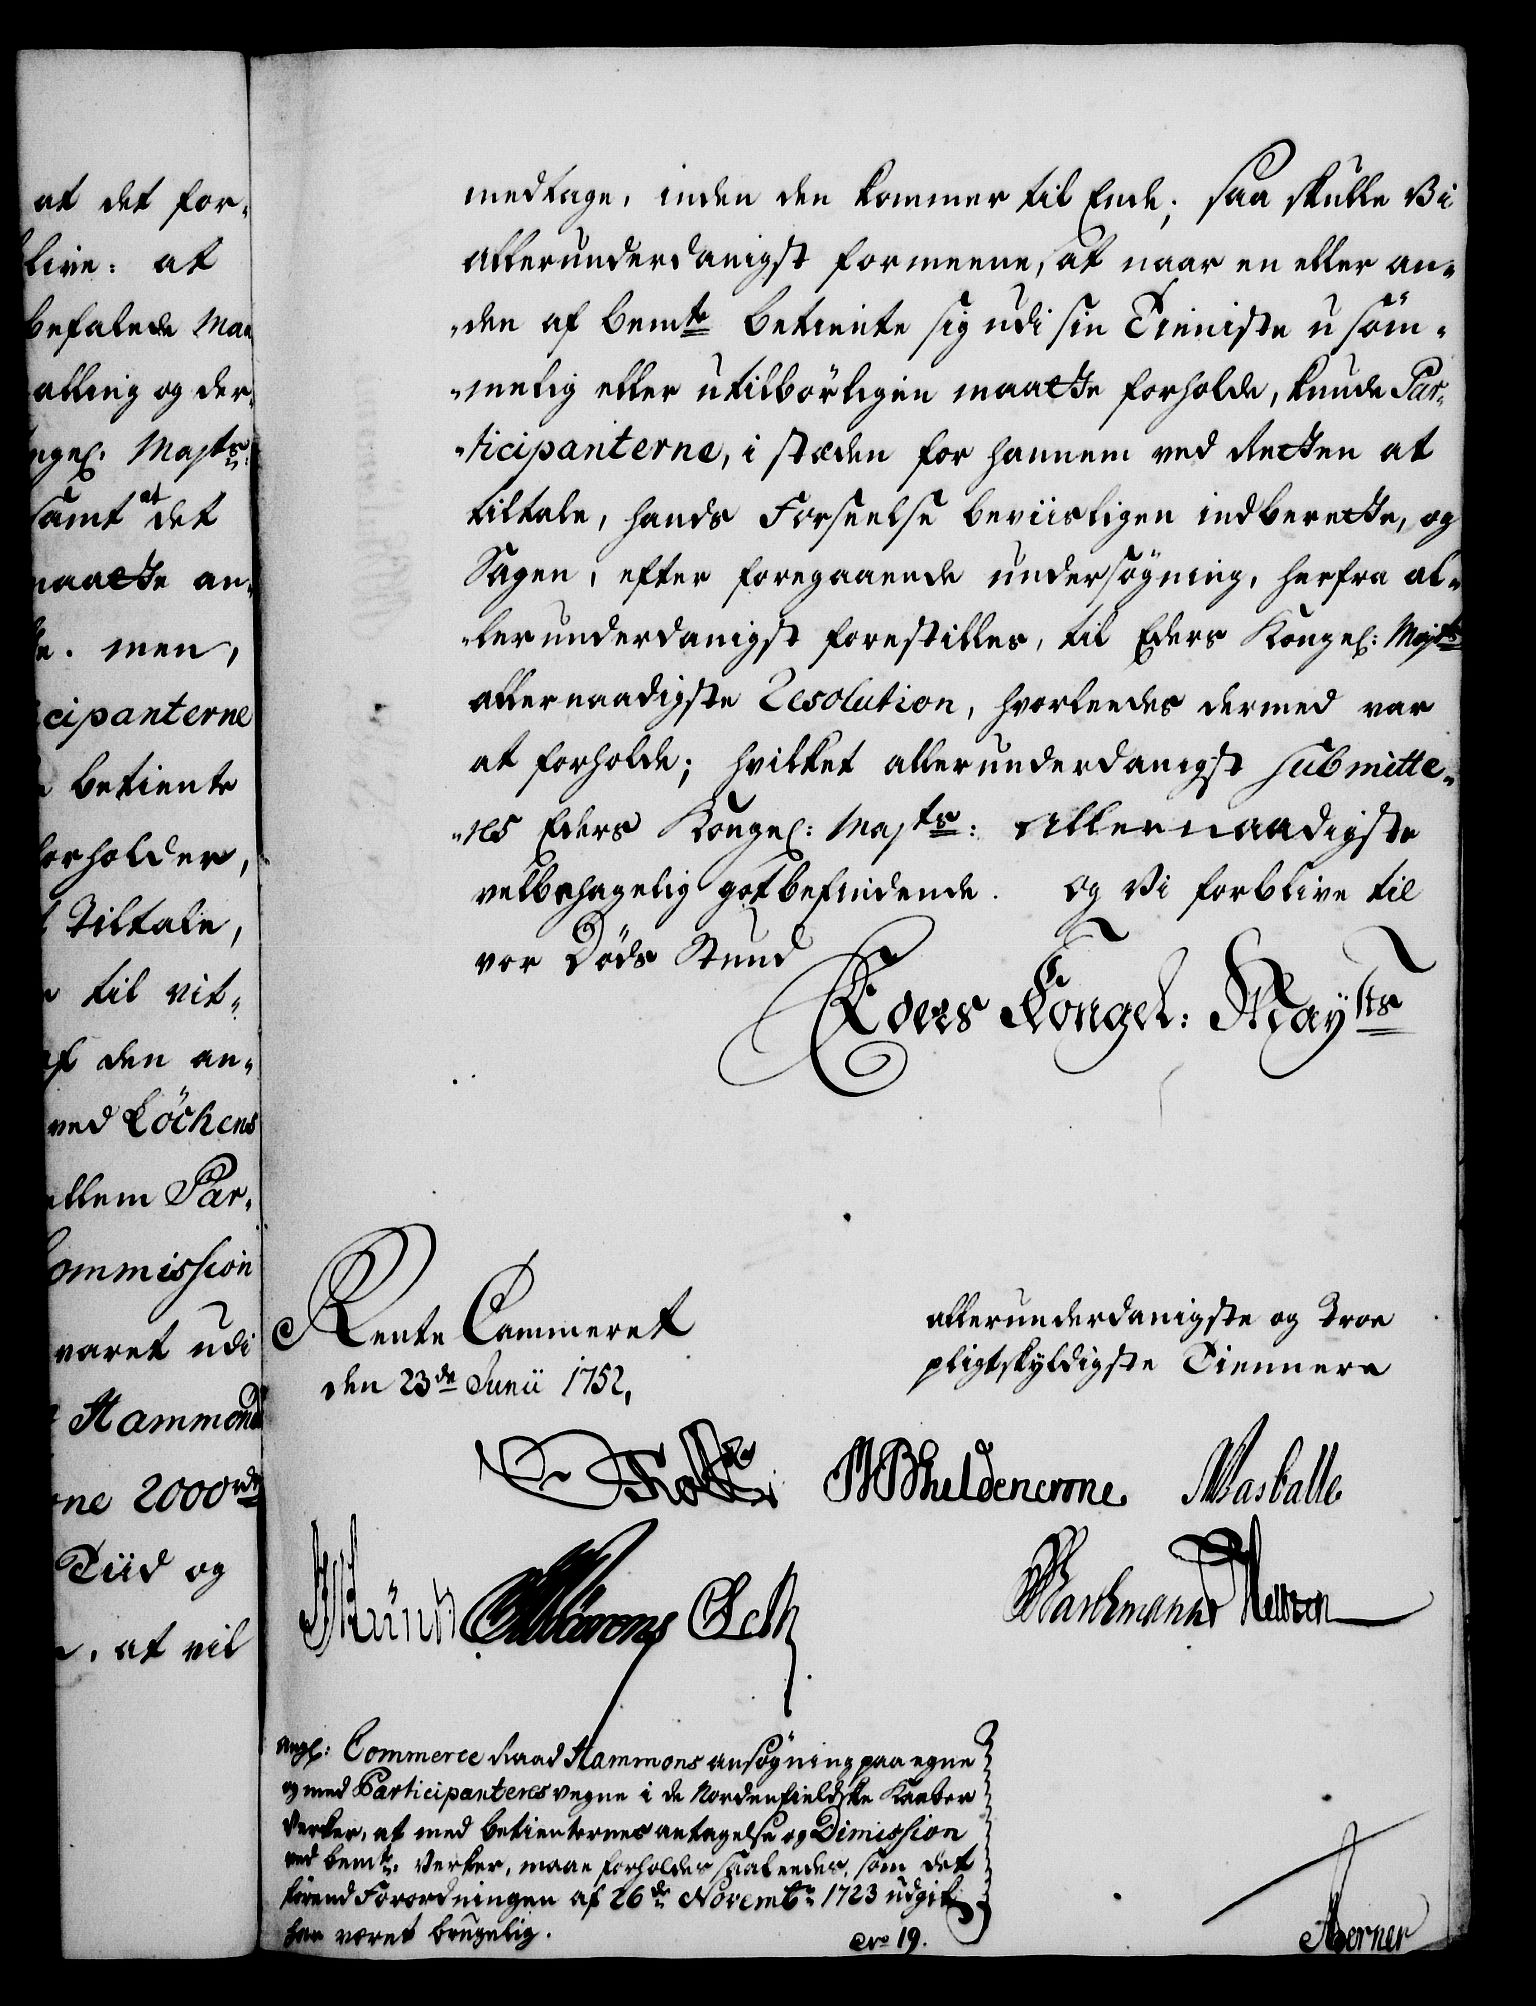 at det for-
blive: at
befalede Man
alling og der-
ngel. Maj.ts
samt at det
maatte an-
men,
cipanterne
betiente
forholder,
Tiltale,
til vit-
af den an-
ved Löchens
ellem Par-
Commission
varet udi
Hammonds
ne 2000 rdr
Tiid og
at vil
medtage, inden den kommer til Ende; saa skulle Vi
allerunderdanigst formeene, at naar en eller an-
-den af bemte Betiente sig udi sin Tieniste u söm-
-melig eller utilbörligen maatte forholde, kunde Par-
-ticipanterne, i stæden for hannem ved Retten at
tiltale, hands Forseelse beviisligen indberette, og
Sagen, efter foregaaende undersögning, herfra al-
-lerunderdanigst forestilles, til Eders Kongel: Majts
allernaadigste Resolution, hvorleedes dermed var
at forholde; hvilket allerunderdanigst submitte-
-res Eders Kongel: Majts: Allernaadigste
velbehagelig gotbefindende. Og Vi forblive til
vor Döds Stund
Eders Kongel: Mayts
Rente Cammeret
den 23de Junii 1752,
allerunderdanigste og Troe
pligtskyldigste Tiennere
Holst
Sheldencrone
Masballe
Selk
Nelson
angl: Commerce Raad Hammons ansögning paa egne
og med Participanteres vegne i de Nordenfieldske Kaaber
Verker, at med betienternes antagelse og Dimission
ved bemte Verker, maae forholdes saaleedes, som det
förend Forordningen af 26de Novembr 1723 udgik
har været brugelig.
No 19.
Aerner